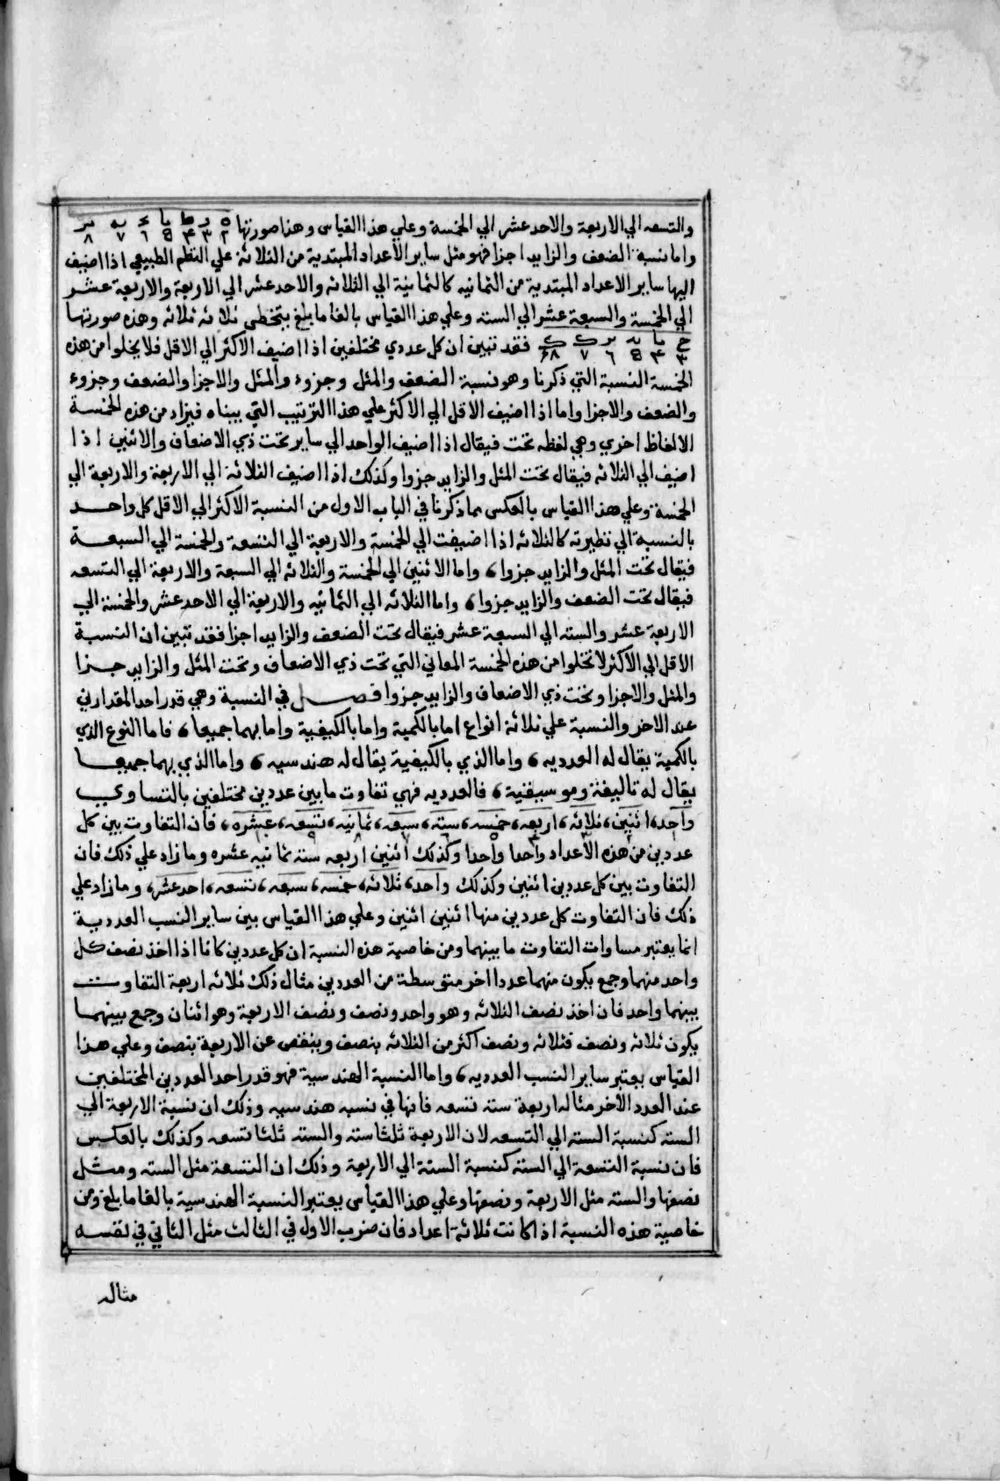 والتسعه الي الاربعة والاحد عشر الي الخمسة وعلي هذا القياس وهذا صورتها
واما نسبة الضعف والزايد اجزا فهو مثل ساير الاعداد المبتدية من الثلاثة علي النظم الطبيعي اذا اضيف
اليها ساير الاعداد المبتدية من الثمانيه كالثمانية الي الثلاثه والاحد عشر الي الاربعة والاربعة عشر
الي الخمسة والسبعة عشر الي السته وعلي هذا القياس بالغا ما بلغ يتخطى ثلاثة ثلاثه وهذه صورتها
فقد تبين ان كل عددي مختلفين اذا اضيف الاكثر الي الاقل فلا يخلوا من هذه
الخمسة النسبة التي ذكرنا وهو نسبة الضعف والمثل وجزوء والمثل والاجزا والضعف وجزوء
والضعف والاجزا واما اذا اضيف الاقل الي الاكثر علي هذا الترتيب التي بيناه فيزاد من هذه الخمسة
الالفاظ اخري وهي لفظه تحت فيقال اذا اضيف الواحد الي ساير تحت ذي الاضعاف والاثنين اذا
اضيف الي الثلاثه فيقال تحت المثل والزايد جزوا وكذلك اذا اضيف الثلاثة الي الاربعة والاربعة الي
الخمسة وعلي هذا القياس بالعكس مما ذكرنا في الباب الاول من النسبة الاكثر الي الاقل كل واحد
بالنسبة الي نظيرته كالثلاثه اذا اضيفت الي الخمسة والاربعة الي التسعة والخمسة الي السبعة
فيقال تحت المثل والزايد جزوا، واما الاثنين الي الخمسة والثلاثه الي السبعة والاربعة الي التسعه
فيقال تحت الضعف والزايد جزوا، واما الثلاثه الي الثمانيه والاربعة الي الاحد عشر والخمسة الي
الاربعة عشر والسته الي السبعة عشر فيقال تحت الضعف والزايد اجزا فقد تبين ان النسبة
الاقل الي الاكثر لا تخلوا من هذه الخمسة المعاني التي تحت ذي الاضعاف وتحت المثل والزايد جزا
والمثل والاجزا وتحت ذي الاضعاف والزايد جزوا فصل في النسبة وهي قدر احد المقدارين
عند الاخر والنسبة علي ثلاثة انواع اما بالكمية واما بالكيفية واما بهما جميعا، فاما النوع الذي
بالكمية يقال له العدديه، واما الذي بالكيفية يقال له هندسيه، واما الذي بهما جميعا
يقال له تاليفة وموسيقية، فالعدديه فهي تفاوت ما بين عددين مختلفين بالتساوي
واحد، اثنين، ثلاثه، اربعه، خمسه، سته، سبعه، ثمانيه، تسعه، عشره، فان التفاوت بين كل
عددين من هذه الاعداد واحدا واحدا وكذلك اثنين اربعه سته ثمانيه عشره وما زاد علي ذلك فان
التفاوت بين كل عددين اثنين وكذلك واحد، ثلاثه، خمسه، سبعه، تسعه، احد عشر، وما زاد علي
ذلك فان التفاوت كل عددين منها اثنين اثنين وعلي هذا القياس بين ساير النسب العددية
انما يعتبر مساوات التفاوت ما بينهما ومن خاصية هذه النسبة ان كل عددين كانا اذا اخذ نصف كل
واحد منهما وجمع يكون منهما عددا اخر متوسطة من العددين مثال ذلك ثلاثه اربعة التفاوت
بينهما واحد فان اخذ نصف الثلاثه وهو واحد ونصف ونصف الاربعة وهو اثنان وجمع بينهما
يكون ثلاثه ونصف فثلاثه ونصف اكثر من الثلاثه بنصف وينقص عن الاربعة بنصف وعلي هذا
القياس يعتبر ساير النسب العدديه، واما النسبة الهندسية فهو قدر احد العددين المختلفين
عند العدد الاخر مثاله اربعة سته تسعه فانها في نسبه هندسيه وذلك ان نسبة الاربعة الي
السته كنسبة السته الي التسعه لان الاربعة ثلثا سته والسته ثلثا تسعه وكذلك بالعكس
فان نسبة التسعة الي السته كنسبة الستة الي الاربعة وذلك ان التسعة مثل السته ومثل
نصفها والسته مثل الاربعة ونصفها وعلي هذا القياس يعتبر النسبة الهندسية بالغا ما بلغ ومن
خاصية هذه النسبة اذا كانت ثلاثة اعداد فان ضرب الاول في الثالث مثل الثاني في نفسه
مثاله